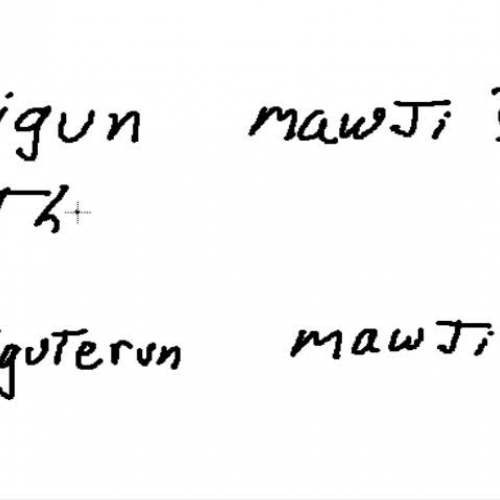 igun mawJi ?
Th
guTerun mawJi